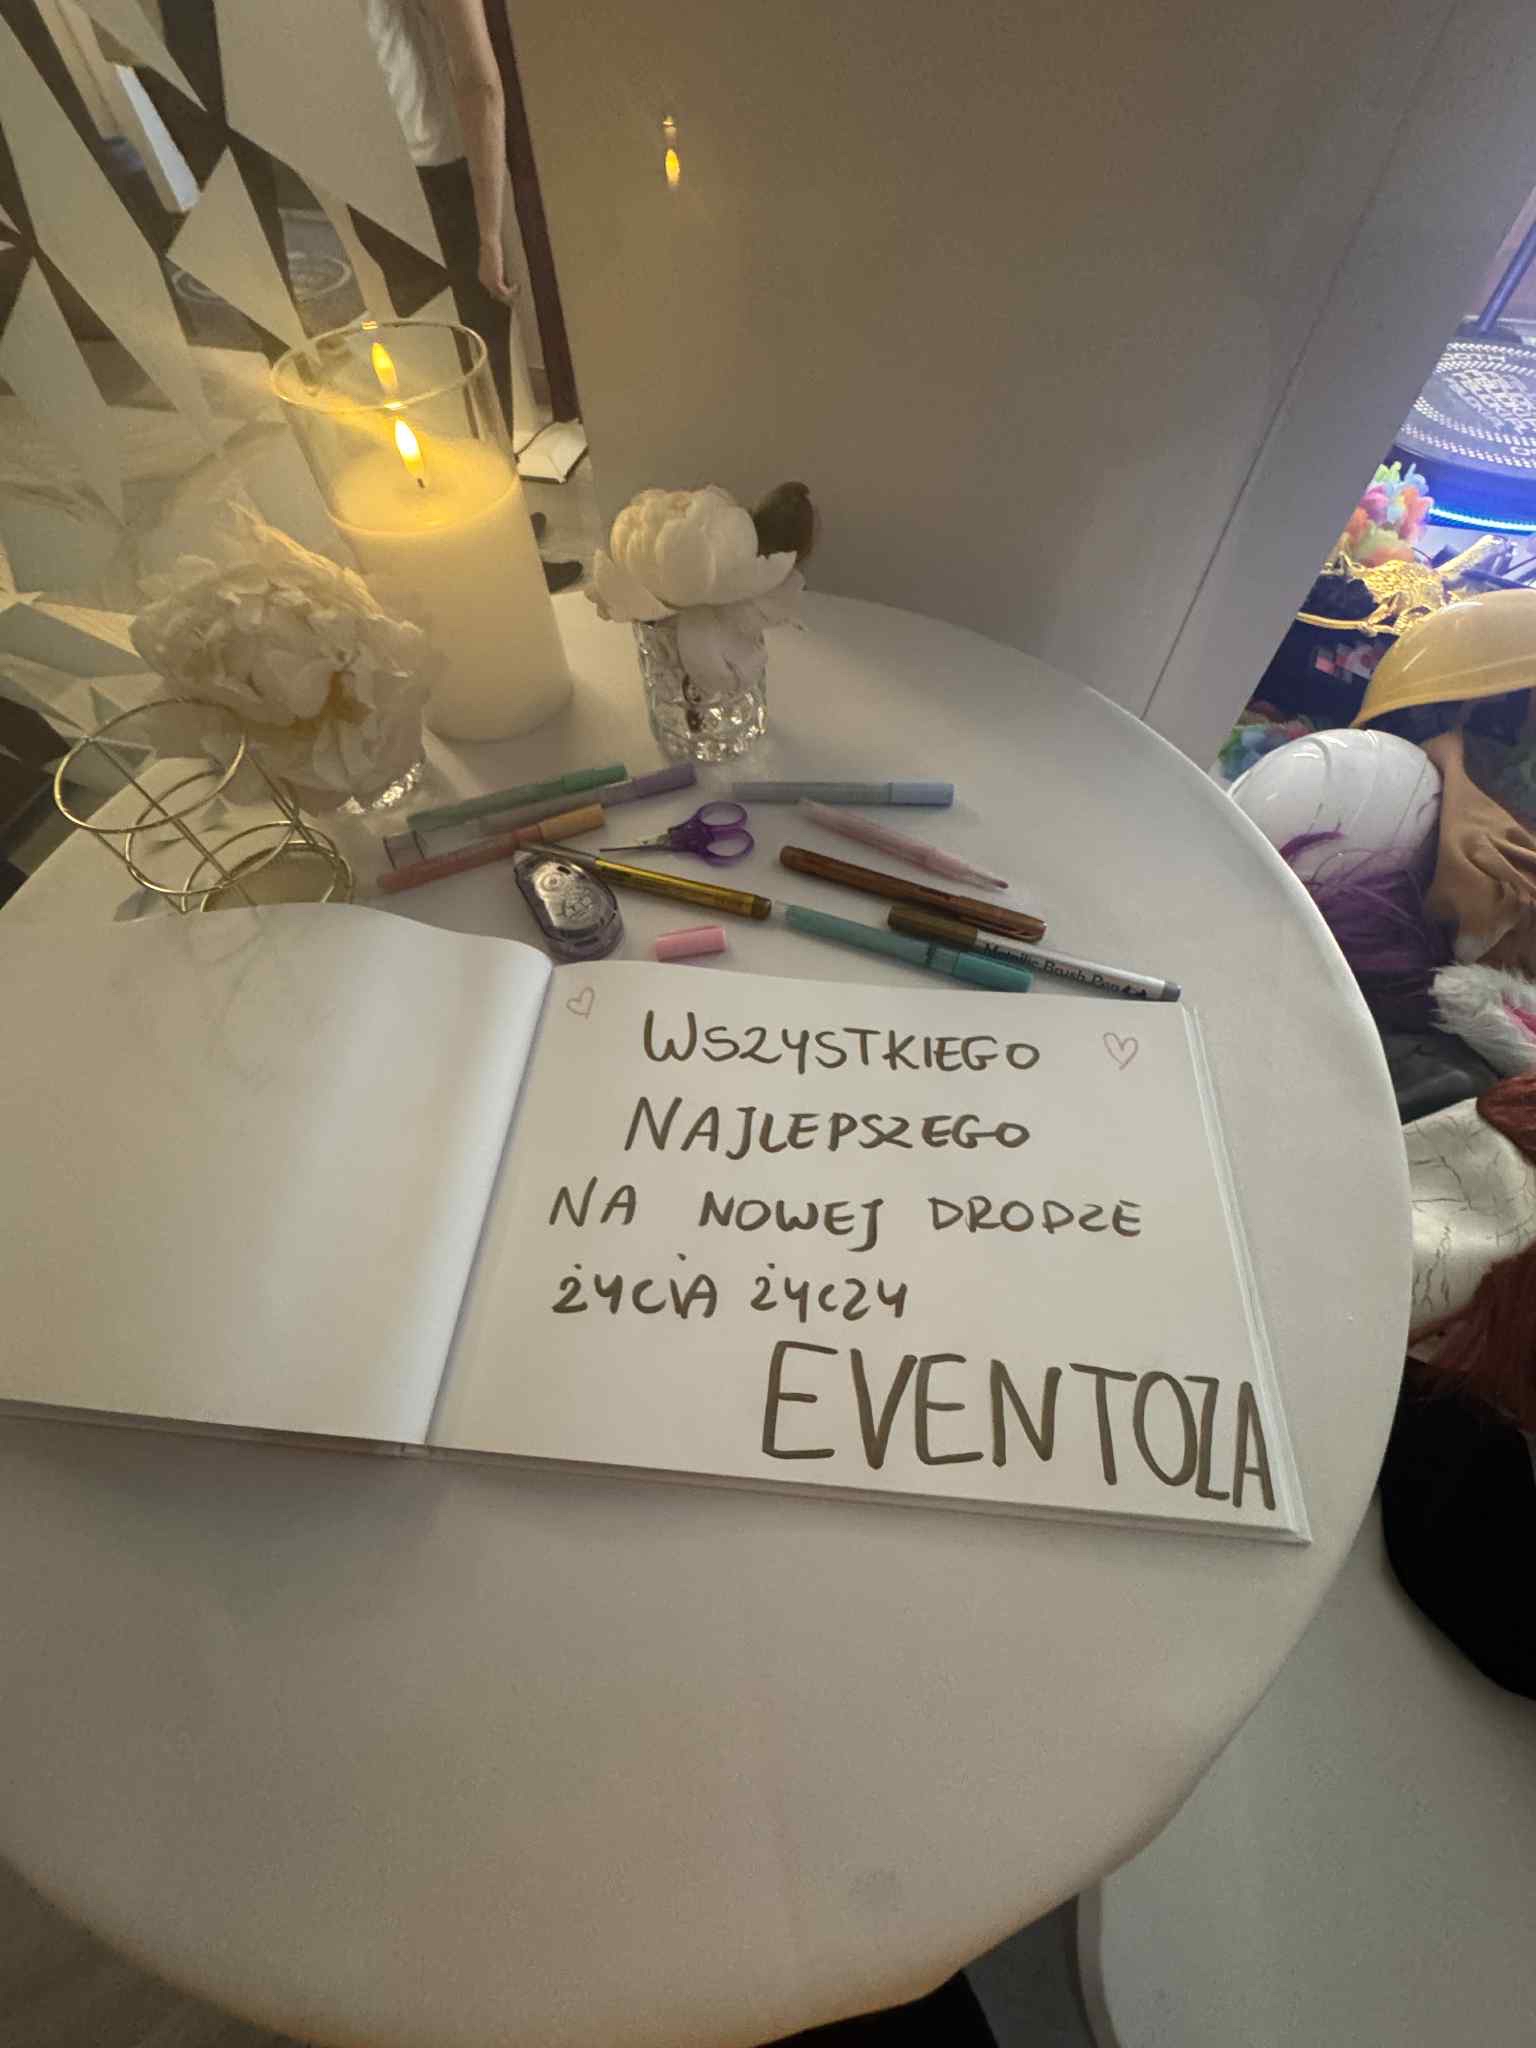 WSZYSTKIEGO
NAJLEPSZEGO
NA NOWEJ DRODZE
ŻYCIA ŻYCZY
EVENTOZA
Metallic Brush Pen